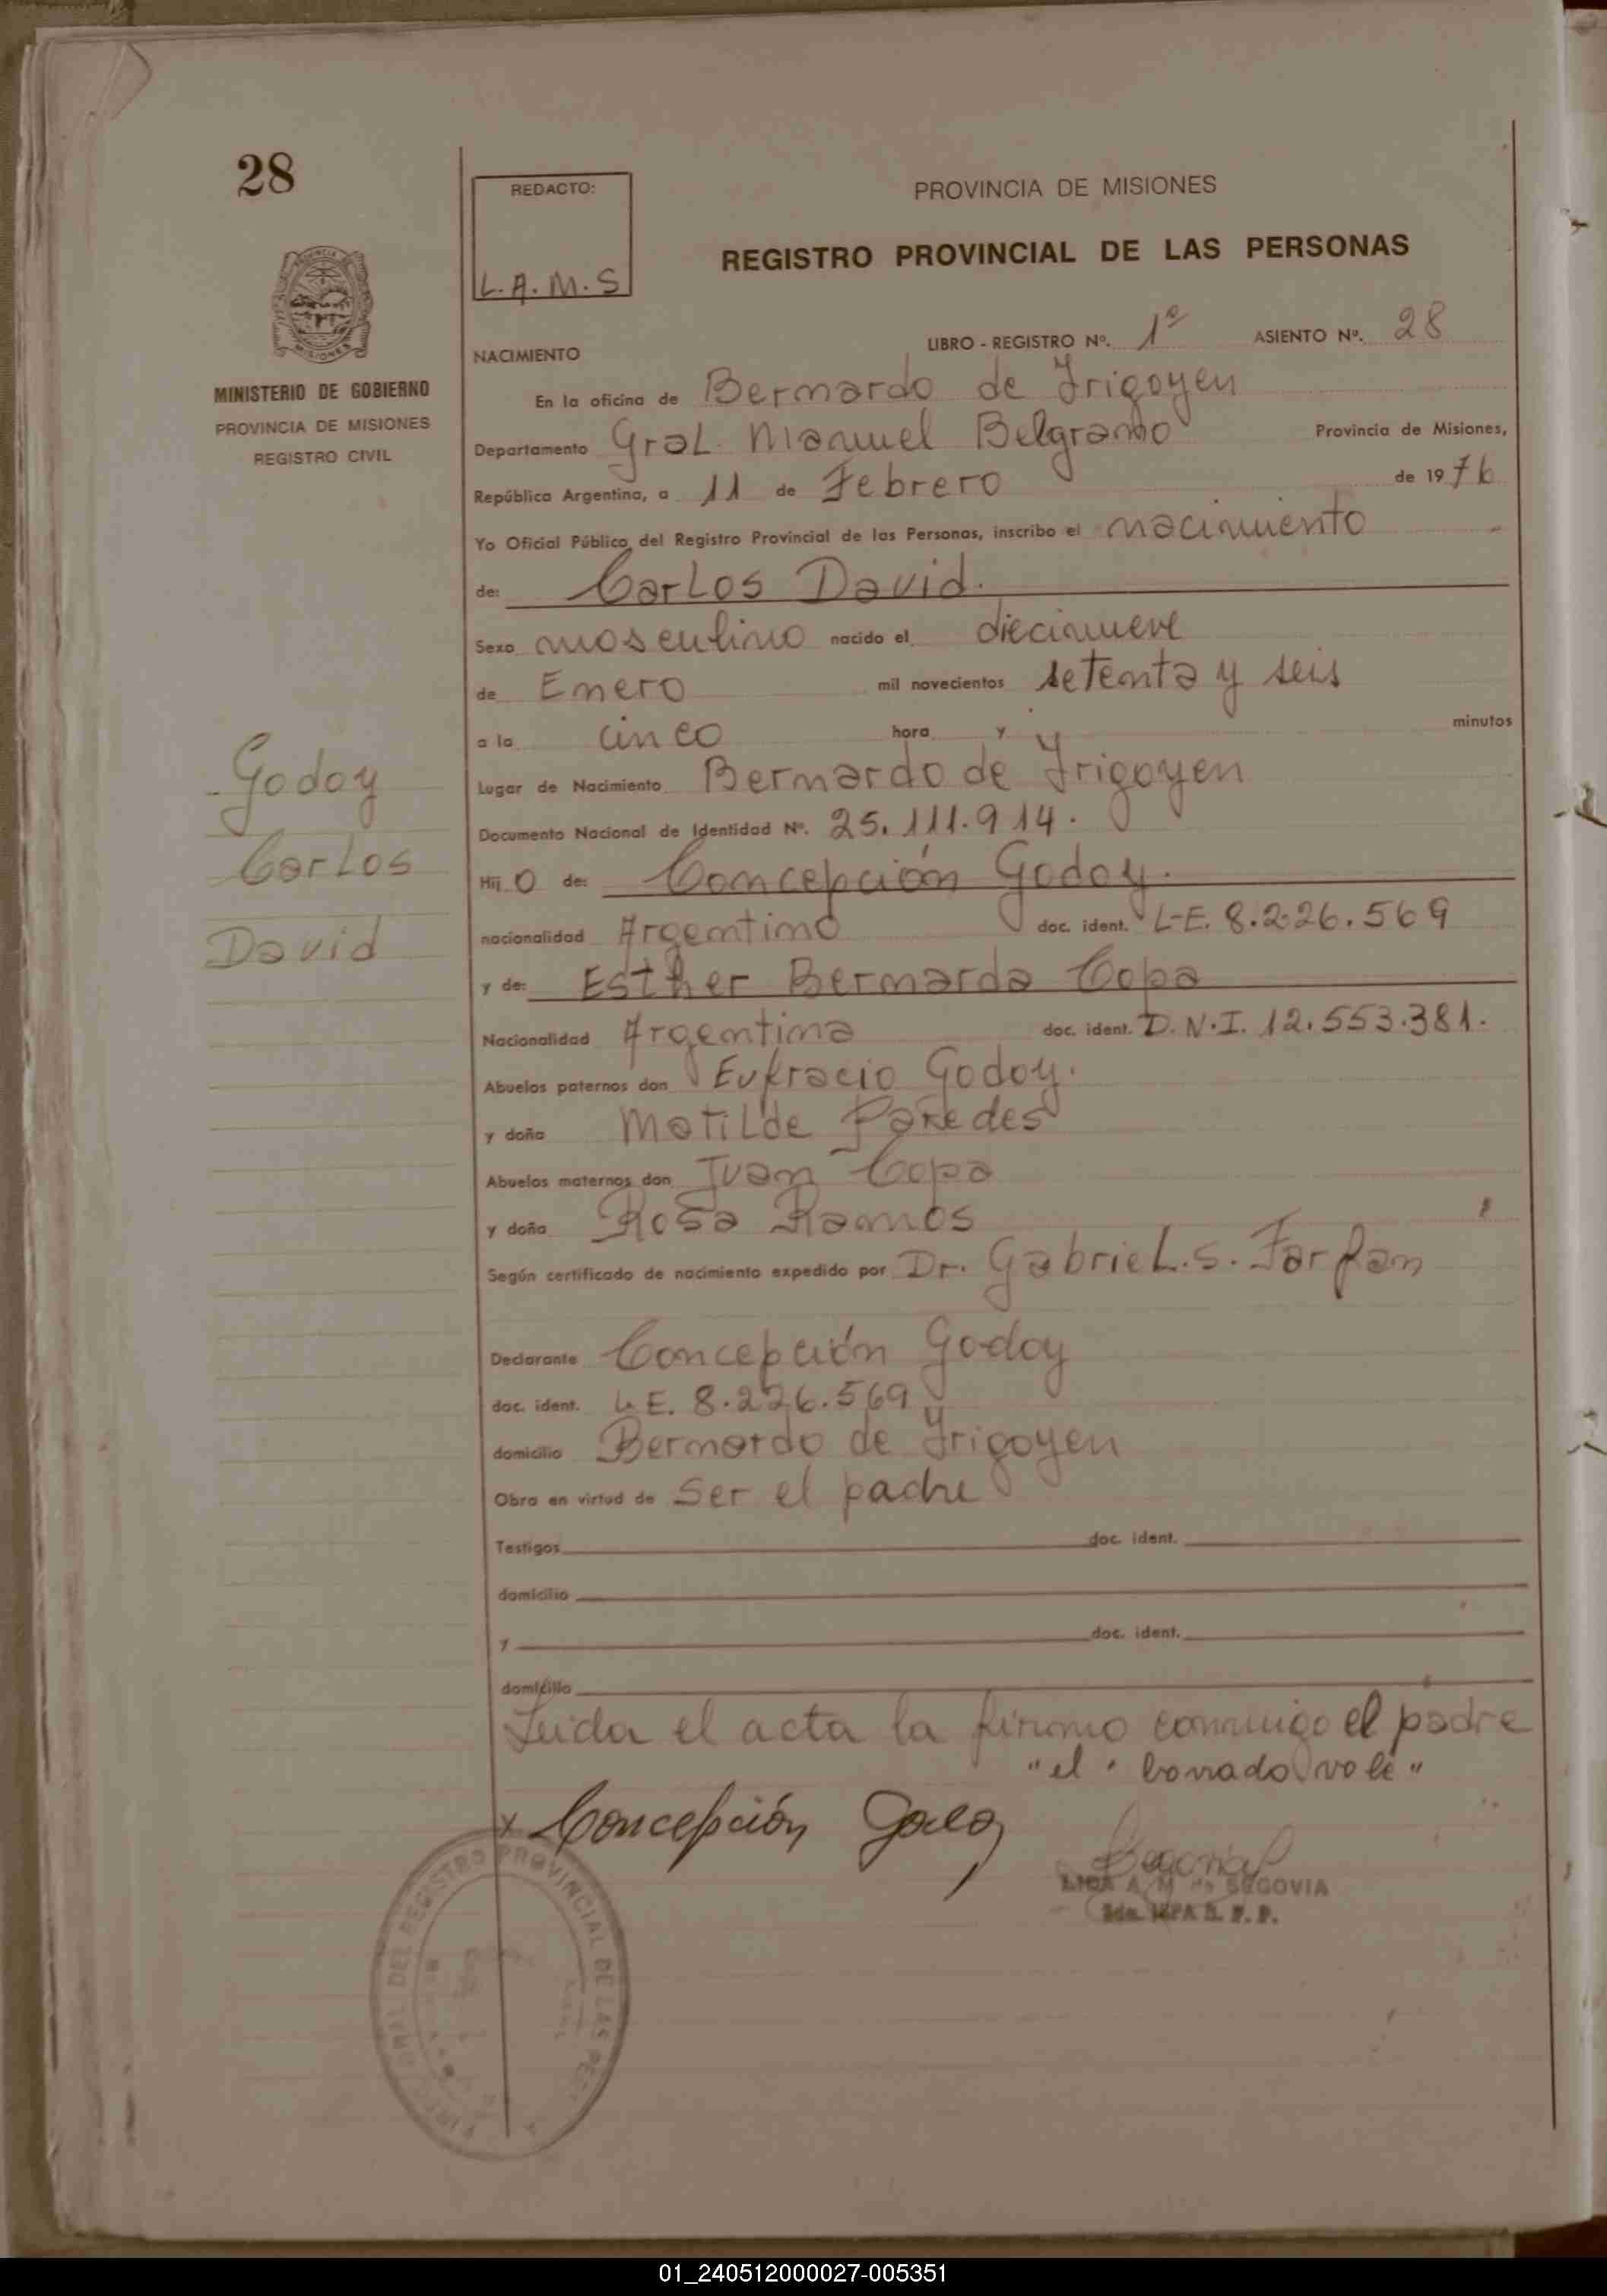 28
REDACTO:
L.A.M.S
PROVINCIA DE MISIONES
REGISTRO PROVINCIAL DE LAS PERSONAS
MISIONES
MINISTERIO DE GOBIERNO
PROVINCIA DE MISIONES
REGISTRO CIVIL
LIBRO - REGISTRO Nº. 1º ASIENTO Nº. 28
NACIMIENTO
En la oficina de Bernardo de Irigoyen
Departamento Gral. Manuel Belgrano Provincia de Misiones,
República Argentina, a 11 de Febrero de 1976
Yo Oficial Público del Registro Provincial de las Personas, inscribo el nacimiento
de: Carlos David.
Sexo masculino nacido el diecinueve
de Enero mil novecientos setenta y seis
a la cinco hora y minutos
Lugar de Nacimiento Bernardo de Irigoyen
Documento Nacional de Identidad Nº. 25.111.914.
Hij o de: Concepción Godoy.
nacionalidad Argentino doc. ident. L-E. 8.226.569
y de: Esther Bernarda Copa
Nacionalidad Argentina doc. ident. D.N.I. 12.553.381.
Abuelos paternos don Eufracio Godoy.
y doña Matilde Paredes
Abuelos maternos don Juan Copa
y doña Rosa Ramos
Según certificado de nacimiento expedido por Dr. Gabriel.S. Farfan
Godoy
Carlos
David
Declarante Concepción Godoy
doc. ident. L.E. 8.226.569
domicilio Bernardo de Irigoyen
Obra en virtud de Ser el padre
Testigos doc. ident.
domicilio
y doc. ident.
domicilio
Leida el acta la firmo conmigo el padre
"el" borrado vale"
x Concepción Godoy
Segovia
LIDA A M de SEGOVIA
REGISTRO PROVINCIAL DE LAS PE
01_240512000027-005351